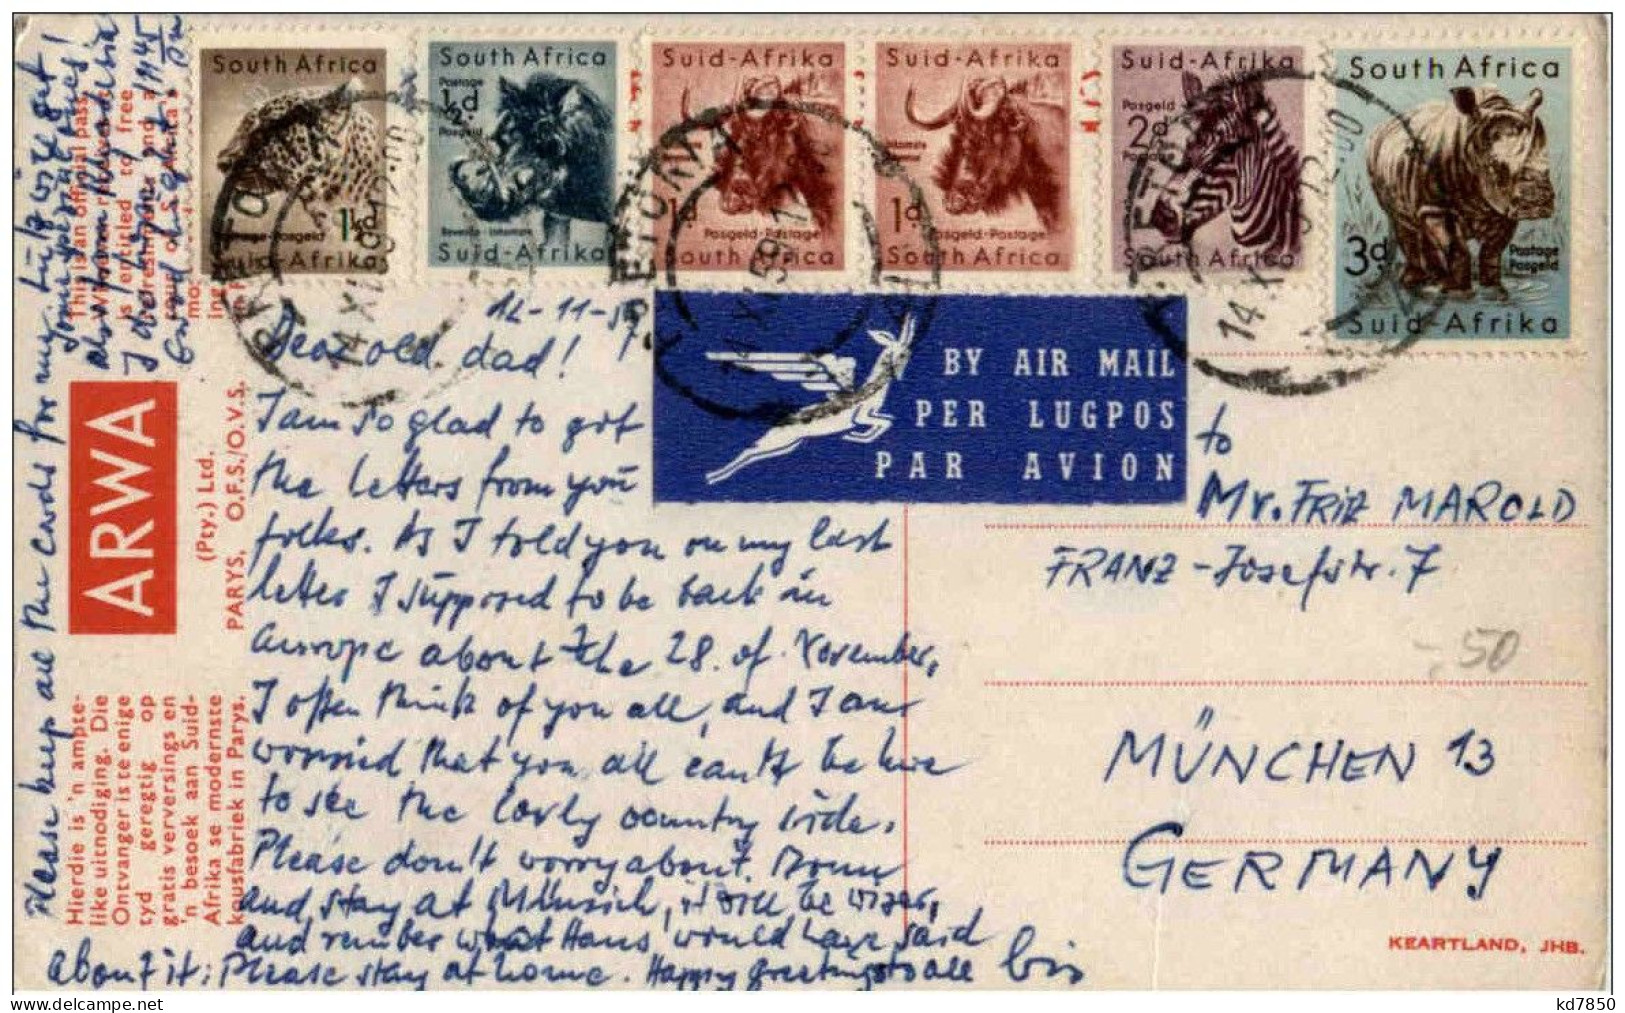 South Africa
1½d
Postage-Posgeld
Suid-Afrika
South Africa
Postage
½d
Posgeld
Suid-Afrika
Suid-Afrika
1d
Posgeld-Postage
South Africa
Suid-Afrika
1d
Posgeld-Postage
South Africa
Suid-Afrika
Posgeld
2d
Postage
South Africa
South Africa
3d
Postage
Posgeld
Suid-Afrika
PRETORIA
14 XI 59
12-11-59
Dear old dad!
I am so glad to get
the letters from you
folks. As I told you on my last
letter I supposed to be back in
Europe about the 28. of November,
I often think of you all, and I am
worried that you all can't be here
to see the lovly country side.
Please don't worry about
and stay at Munich, it will be
and rember what Hans would have said
about it: Please stay at home. Happy greetings to all
BY AIR MAIL
PER LUGPOS
PAR AVION
to
Mr. FRITZ MAROLD
FRANZ-Josefstr. 7
MÜNCHEN 13
GERMANY
-.50
KEARTLAND, JHB.
Please keep all the cards for me, until we get
some
also from Rhodesia
ARWA
(Pty.) Ltd.
PARYS, O.F.S./O.V.S.
This is an official pass.
is entitled to free
Hierdie is 'n ampte-
like uitnodiging. Die
Ontvanger is te enige
tyd geregtig op
gratis verversings en
'n besoek aan Suid-
Afrika se modernste
kousfabriek in Parys.
kd7850